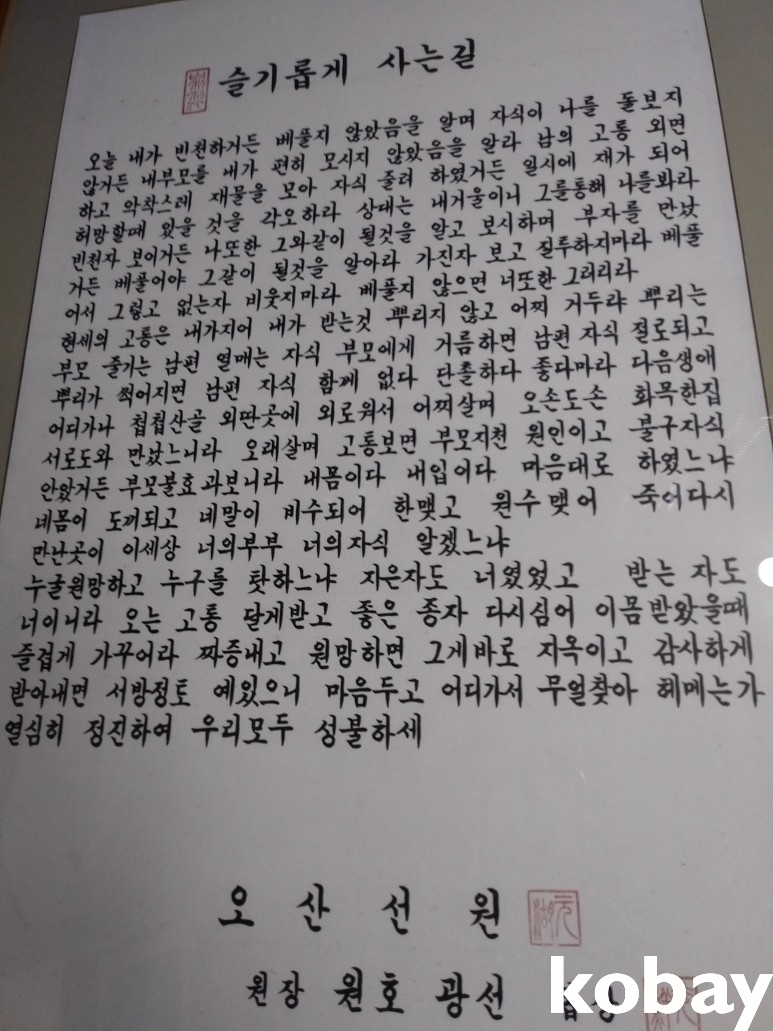 슬기롭게 사는길
오늘 내가 빈천하거든 베풀지 않았음을 알며 자식이 나를 돌보지
않거든 내부모를 내가 편히 모시지 않았음을 알라 남의 고통 외면
하고 악착스레 재물을 모아 자식 줄려 하였거든 일시에 재가 되어
허망할때 왔을 것을 각오하라 상대는 내거울이니 그를통해 나를봐라
빈천자 보이거든 나또한 그와같이 될것을 알고 보시하며 부자를 만났
거든 베풀어야 그같이 될것을 알아라 가진자 보고 질투하지마라 베풀
어서 그렇고 없는자 비웃지마라 베풀지 않으면 너또한 그러리라
현세의 고통은 내가지어 내가 받는것 뿌리지 않고 어찌 거두랴 뿌리는
부모 줄기는 남편 열매는 자식 부모에게 거름하면 남편 자식 절로되고
뿌리가 썩어지면 남편 자식 함께 없다 단촐하다 좋다마라 다음생애
어디가나 첩첩산골 외딴곳에 외로워서 어찌살며 오손도손 화목한집
서로도와 만났느니라 오래살며 고통보면 부모지천 원인이고 불구자식
안왔거든 부모불효과보니라 내몸이다 내입이다 마음대로 하였느냐
네몸이 도끼되고 네말이 비수되어 한맺고 원수맺어 죽어다시
만난곳이 이세상 너의부부 너의자식 알겠느냐
누굴원망하고 누구를 탓하느냐 지은자도 너였었고 받는 자도
너이니라 오는 고통 달게받고 좋은 종자 다시심어 이몸받았을때
즐겁게 가꾸어라 짜증내고 원망하면 그게바로 지옥이고 감사하게
받아내면 서방정토 예있으니 마음두고 어디가서 무얼찾아 헤메는가
열심히 정진하여 우리모두 성불하세
오산선원
원장 원호 광선
kobay